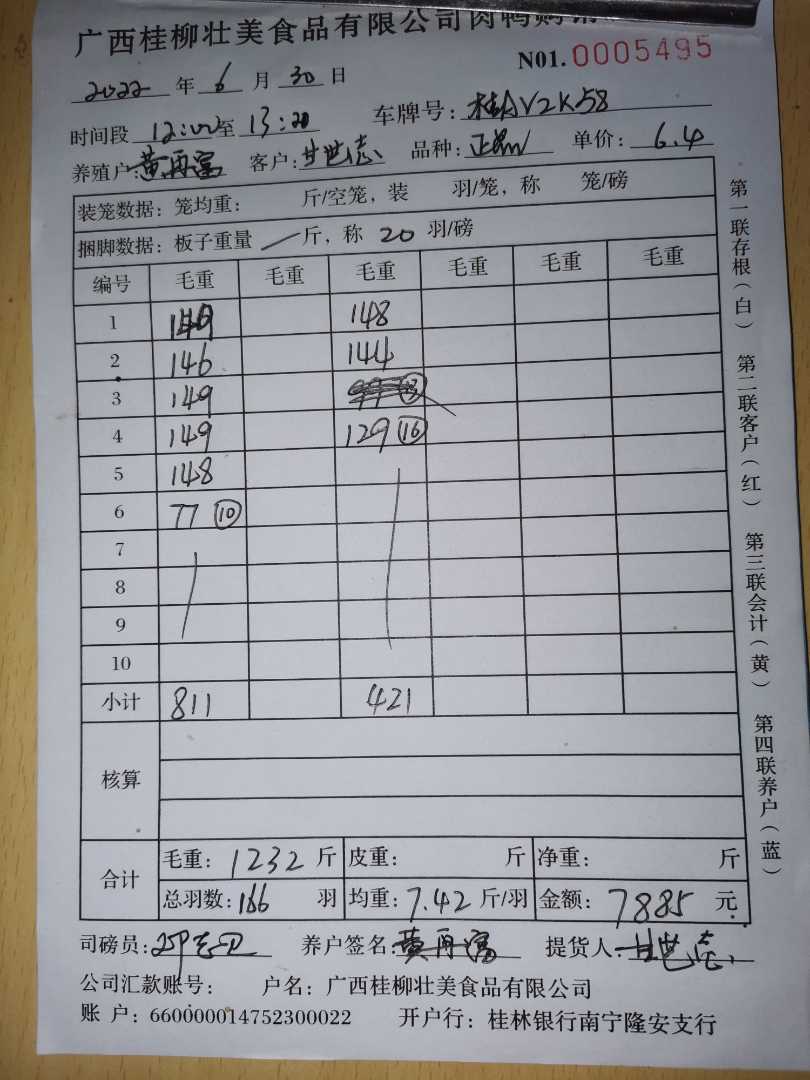 广西桂柳壮美食品有限公司肉鸭购销
N01.0005495
2022 年 6 月 30 日
时间段 12:00 至 13:20 车牌号: 桂AV2K58
养殖户: 黄再富 客户: 甘世志 品种: 单价: 6.4
装笼数据: 笼均重: 斤/空笼, 装 羽/笼, 称 笼/磅
捆脚数据: 板子重量 / 斤, 称 20 羽/磅
编号 毛重 毛重 毛重 毛重 毛重 毛重
1 149 148
2 146 144
3 149
4 149 129 (16)
5 148
6 77 (10)
7
8
9
10
小计 811 421
核算
合计 毛重: 1232 斤 皮重: 斤 净重: 斤
总羽数: 166 羽 均重: 7.42 斤/羽 金额: 7885 元
司磅员: 养户签名: 黄再富 提货人: 甘世志
公司汇款账号: 户名: 广西桂柳壮美食品有限公司
账 户: 660000014752300022 开户行: 桂林银行南宁隆安支行
第一联存根(白) 第二联客户(红) 第三联会计(黄) 第四联养户(蓝)